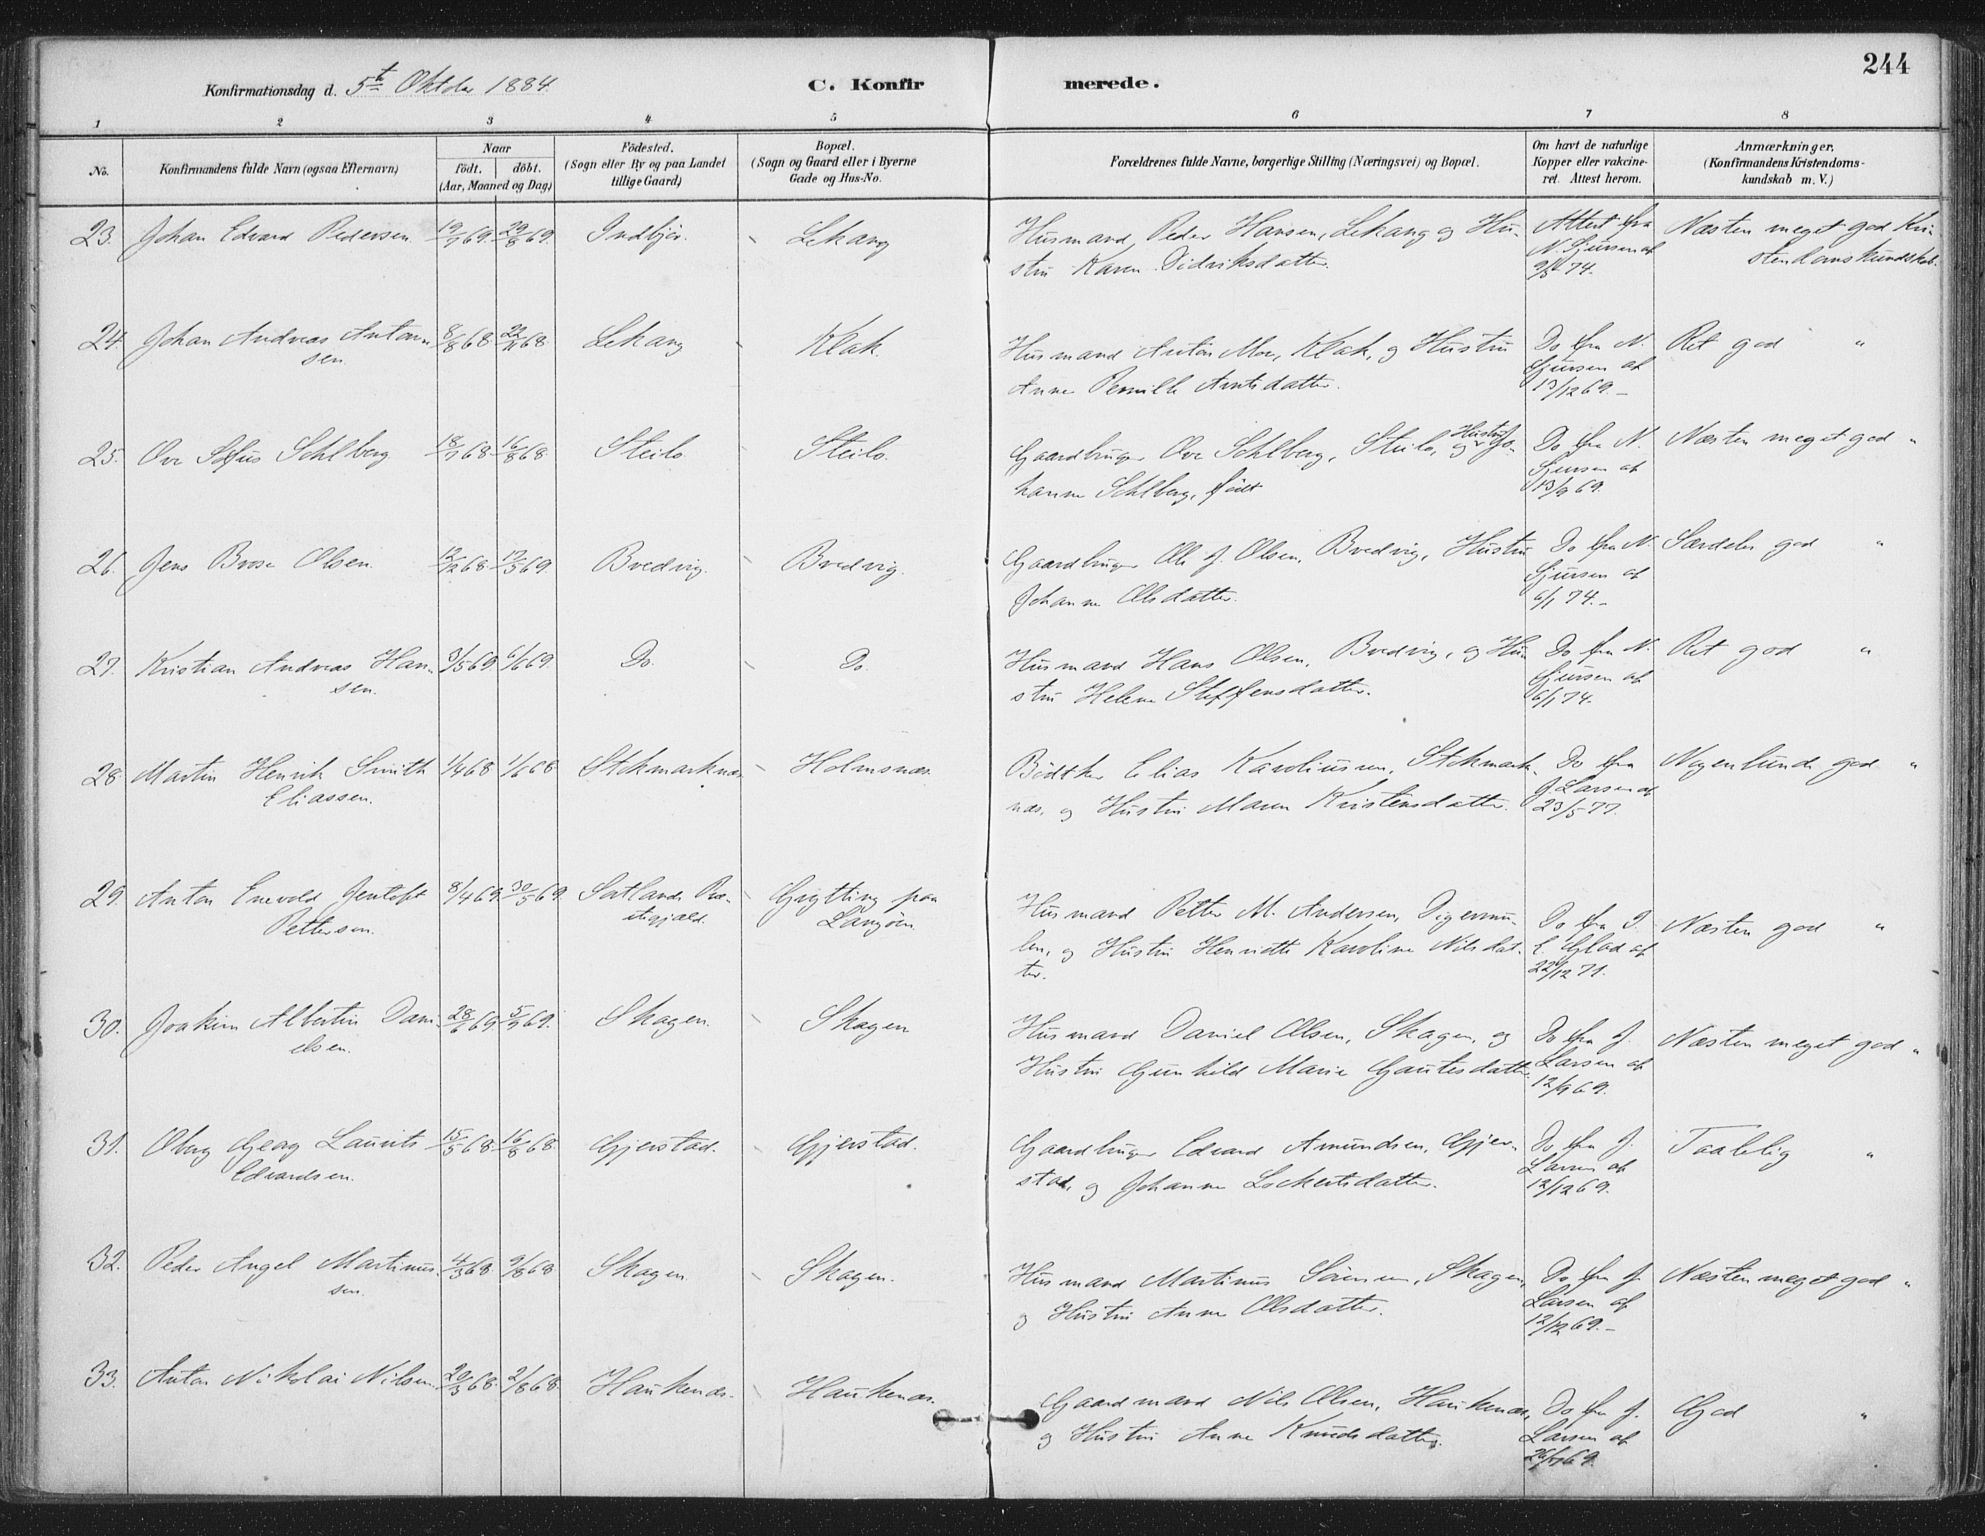 244
Konfirmationsdag d. 5te Oktober 1884.
C. Konfirmerede.
1 2 3 4 5 6 7 8
No.
Konfirmandens fulde Navn (ogsaa Efternavn)
Naar
födt. döbt.
(Aar, Maaned og Dag)
Födested.
(Sogn eller By og paa Landet
tillige Gaard)
Bopæl.
(Sogn og Gaard eller i Byerne
Gade og Hus-No.
Forældrenes fulde Navne, borgerlige Stilling (Næringsvei) og Bopæl.
Om havt de naturlige
Kopper eller vakcine-
ret. Attest herom.
Anmærkninger.
(Konfirmandens Kristendoms-
kundskab m. V.)
23. Johan Edvard Pedersen. 19/7 69. 29/8 69. Indbjör. Lekang Husmand Peder Hansen, Lekang og Hu- Attest fra Næsten meget god Kri-
stru Karen Didriksdatter. N. Sjursen af stendomskundskab.
9/5 74.
24. Johan Andreas Anton- 8/8 68. 22/11 68 Lekang Klak. Husmand Anton Moe, Klak, og Hustru Do fra N. Ret god "
sen. Anne Pernille Arntsdatter. Sjursen af
13/12 69.-
25. Ove Sofus Sehlberg 18/7 68. 16/8 68 Steilo Steilo. Gaardbruger Ove Sehlberg, Steilo, og Hustru Jo- Do fra N. Næsten meget god "
hanne Sehlberg, födt Sjursen af
13/9 69.
26. Jens Brose Olsen. 12/12 68. 17/5 69. Bredvig. Bredvig. Gaardbruger Ole J. Olsen, Bredvig, Hustru Do fra N. Særdeles god "
Johanne Olsdatter. Sjursen af
6/1 74.-
27. Kristian Andreas Han- 3/5 69. 6/6 69. Do. Do. Husmand Hans Olsen, Bredvig, og Hu- Do fra N. Ret god "
sen. stru Helene Steffensdatter. Sjursen af
6/1 74.
28. Martin Henrik Smith 1/4 68 1/6 68 Stokmarknæs Holmsnæs. Bödtker Elias Karoliussen, Stokmark- Do fra Nogenlunde god "
Eliassen. næs, og Hustru Maren Kristensdatter. J. Larsen af
23/5 77.
29. Anton Enevold Jentoft 8/4 69. 30/5 69. Satlands Præ- Grytting paa Husmand Petter M. Andersen, Digermu- Do fra Næsten god "
Pettersen. stegjæld. Langöen. len, og Hustru Henriette Karoline Nilsdat- af
ter. 22/12 71.
30. Joakim Albertin Dani- 28/6 69 5/9 69. Skagen. Skagen Husmand Daniel Olsen, Skagen, og Do fra J. Næsten meget god "
elsen. Hustru Gunhild Marie Gautesdatter. Larsen af
12/9 69.
31. Oberg Georg Laurits 15/5 68. 16/8 68 Gjerstad. Gjerstad. Gaardbruger Edvard Amundsen, Gjer- Do fra J. Taalelig "
Edvardsen. stad, og Johanne Lockertsdatter. Larsen af
12/12 69.
32. Peder Angel Martinus- 4/3 68. 9/8 68. Skagen. Skagen. Husmand Martinus Sörensen, Skagen, Do fra J. Næsten meget god "
sen. og Hustru Anne Olsdatter. Larsen af
12/12 69.-
33. Anton Nikolai Nilsen. 20/3 68. 2/8 68. Haukenæs. Haukenæs. Gaardmand Nils Olsen, Haukenæs, Do fra J. God "
og Hustru Anne Knudsdatter. Larsen af
69.